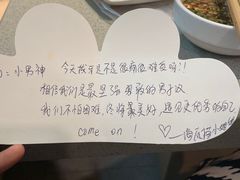 小男神 今天拔牙是不是很痛很难受呀!!
相信我们是最坚强勇敢的男子汉
我们不怕困难,终将最美好,遇见更优秀的自己
come on !